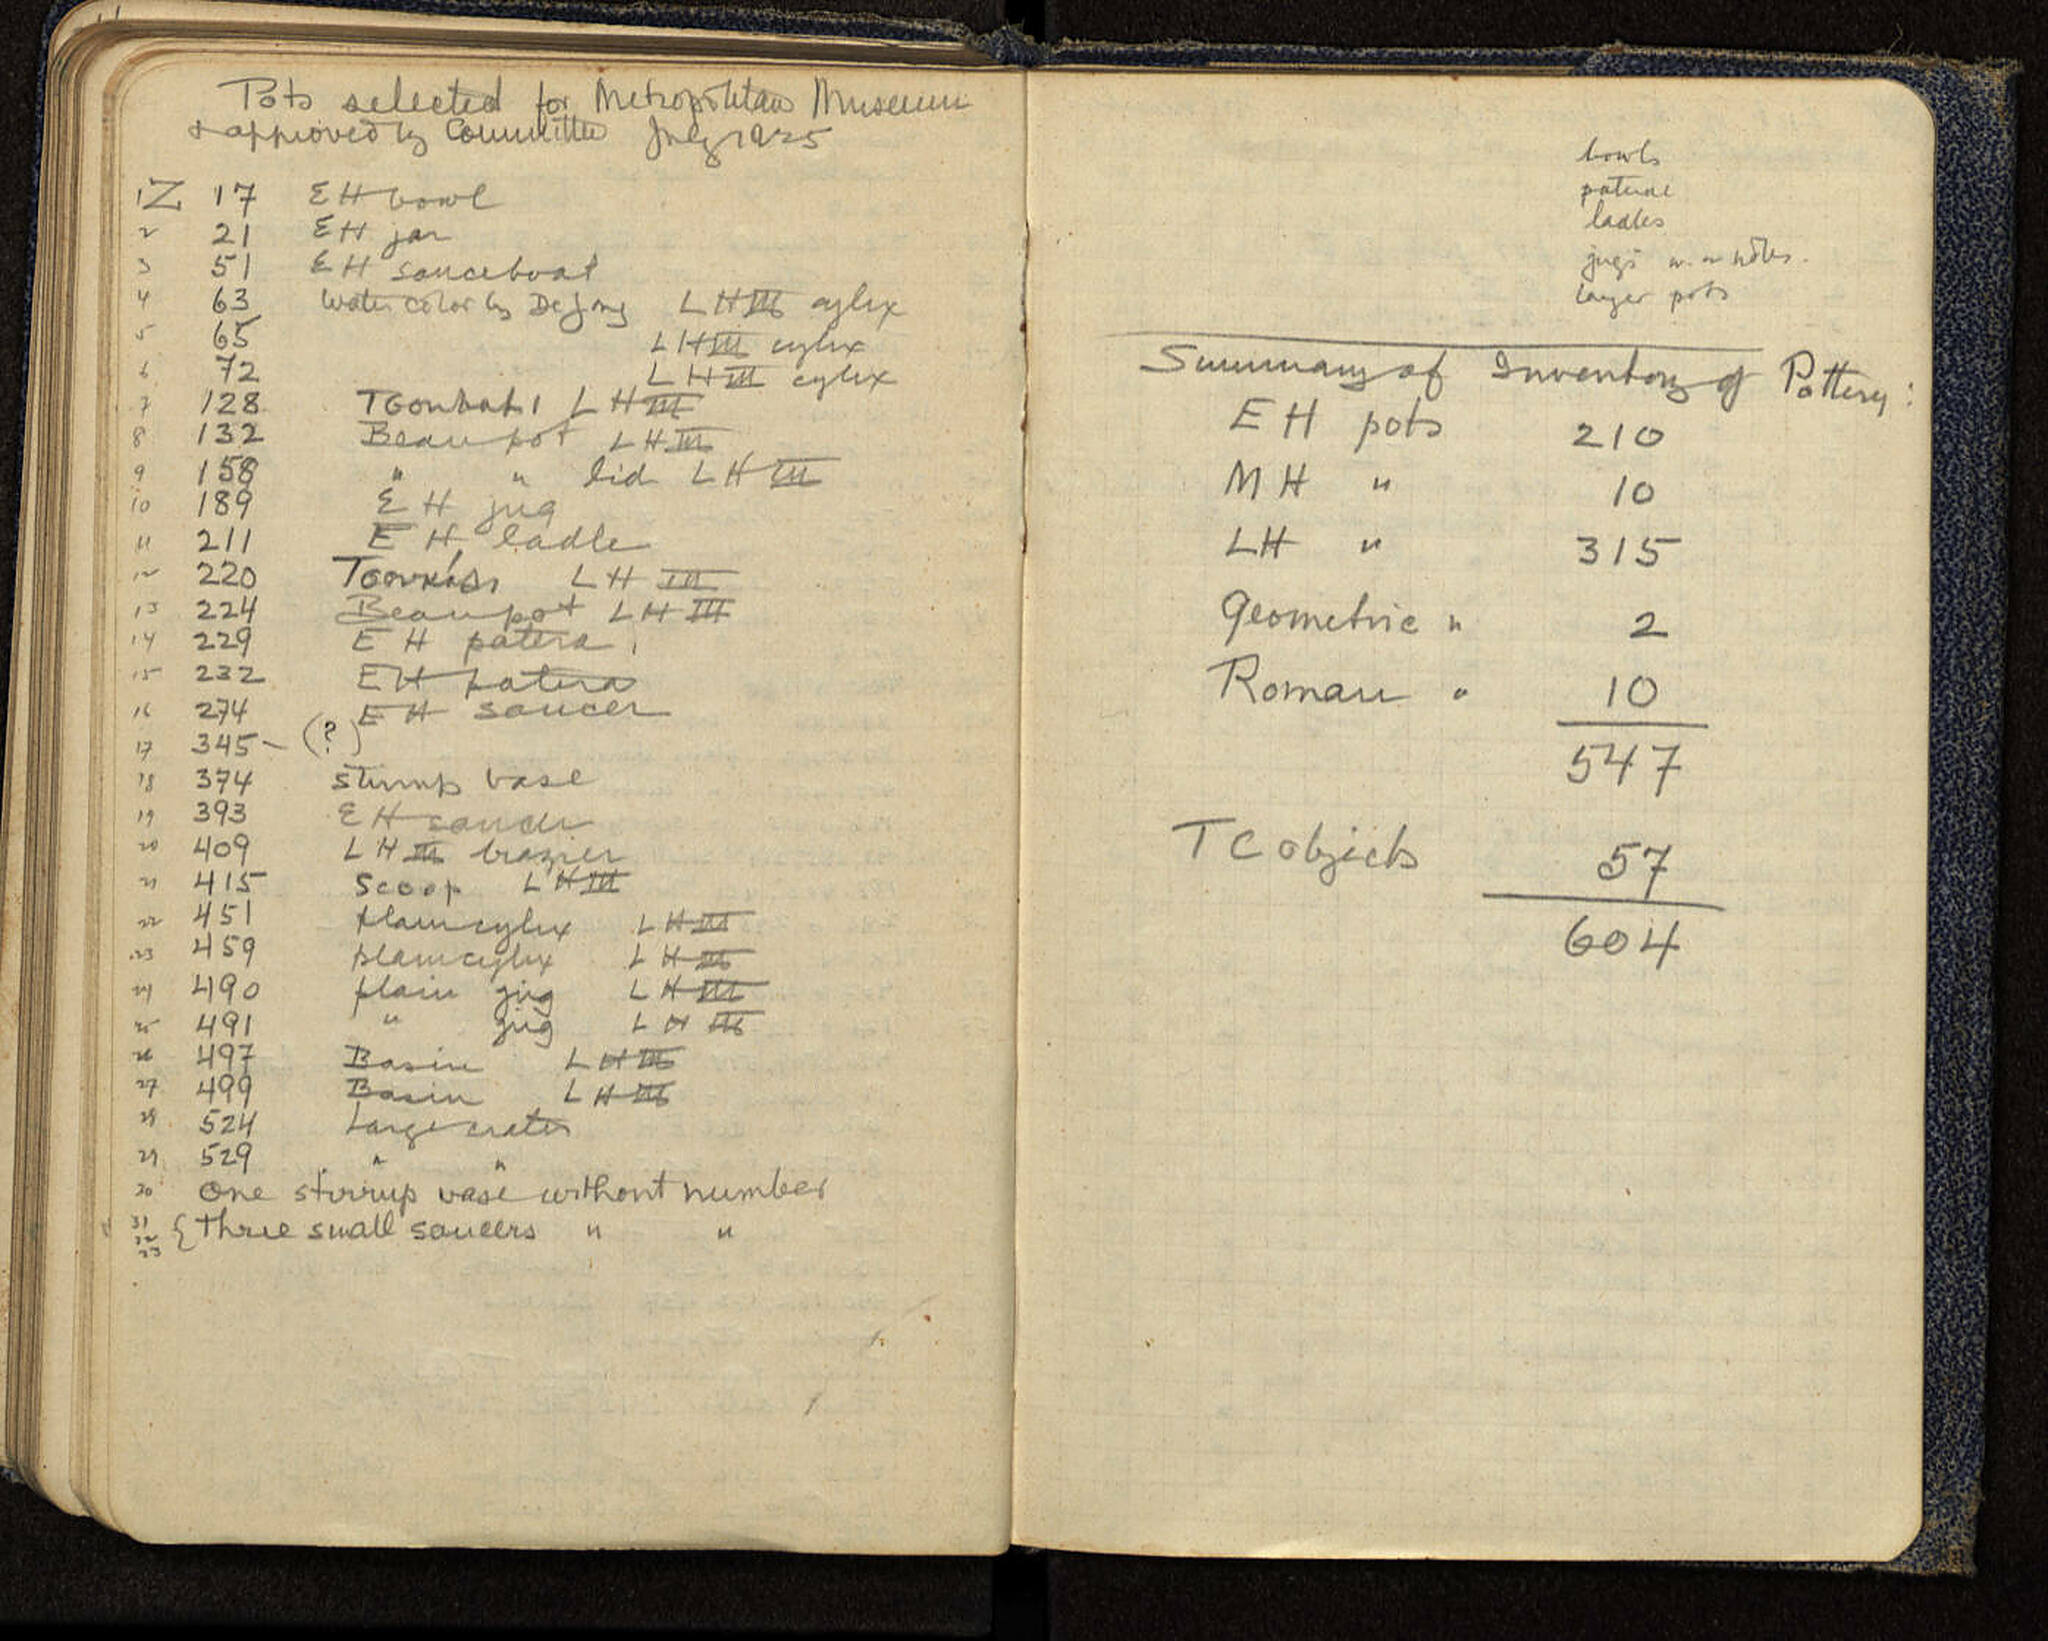 Pots selected for Metropolitan Museum
& approved by Committee July 1925
1 Z 17 EH bowl
2 21 EH jar
3 51 EH sauceboat
4 63 Water color by De Jong LHIII cylix
5 65 LHIII cylix
6 72 LHIII cylix
7 128 LHIII
8 132 Beaupot LHIII
9 158 " " lid LHIII
10 189 EH jug
11 211 EH ladle
12 220 LH III
13 224 Beaupot LH III
14 229 EH patera
15 232 EH patera
16 274 EH saucer
17 345 – (?)
18 374 stirrup vase
19 393 EH saucer
20 409 LHIII brazier
21 415 Scoop LHIII
22 451 plain cylix LHIII
23 459 plain cylix LHIII
24 490 plain jug LHIII
25 491 " jug LH III
26 497 Basin LHIII
27 499 Basin LHIII
28 524 Large crater
29 529 " "
30 One stirrup vase without number
31 32 33 { Three small saucers " "
bowls
paterae
ladles
jugs
larger pots
Summary of Inventory of Pottery:
EH pots 210
MH " 10
LH " 315
Geometric " 2
Roman " 10
547
TC objects 57
604